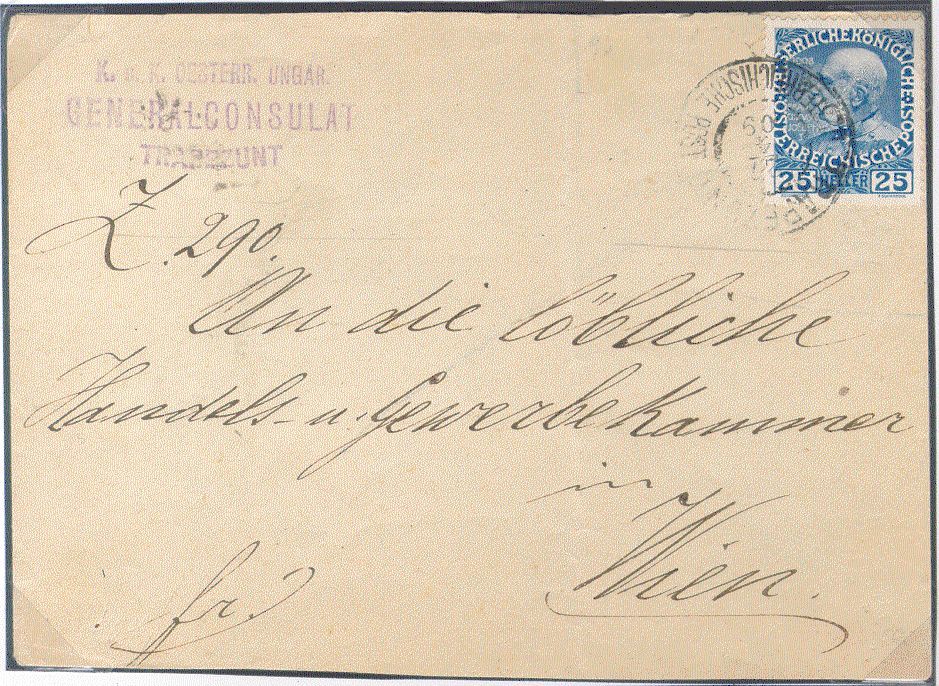 K. u. K. OESTERR. UNGAR.
GENERALCONSULAT
TRAPEZUNT
KAISERLICHEKÖNIGLICHE
ÖSTERREICHISCHE POST
25 HELLER 25
Z. 290.
An die löbliche
Handels- u. Gewerbekammer
in
Wien.
fr.